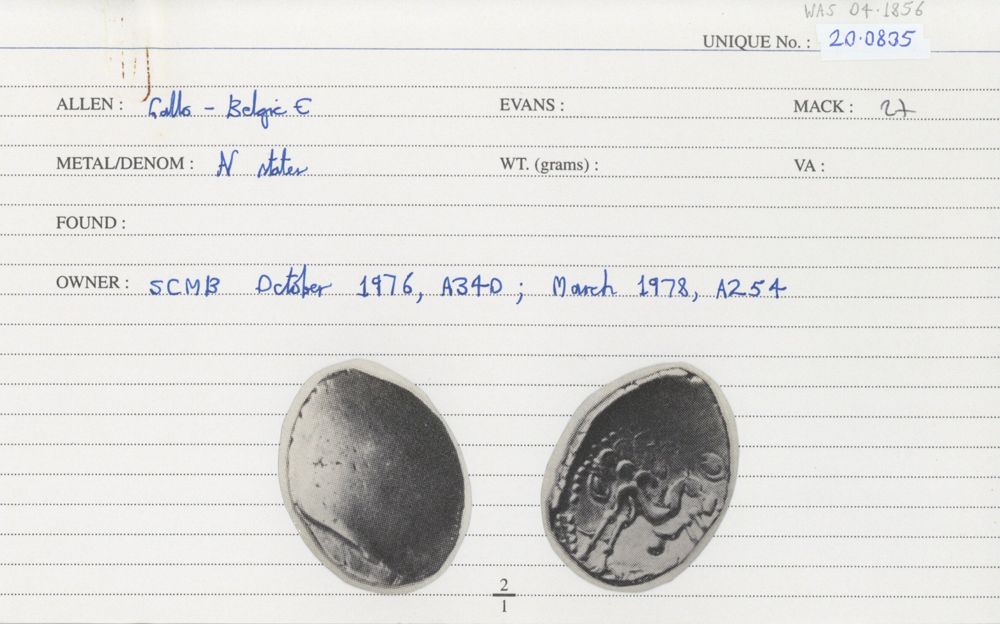 WAS 04.1856
UNIQUE No. : 20.0835
ALLEN : Gallo - Belgic E EVANS : MACK : 27
METAL/DENOM : N stater WT. (grams) : VA :
FOUND :
OWNER : SCMB October 1976, A340 ; March 1978, A254
2
1